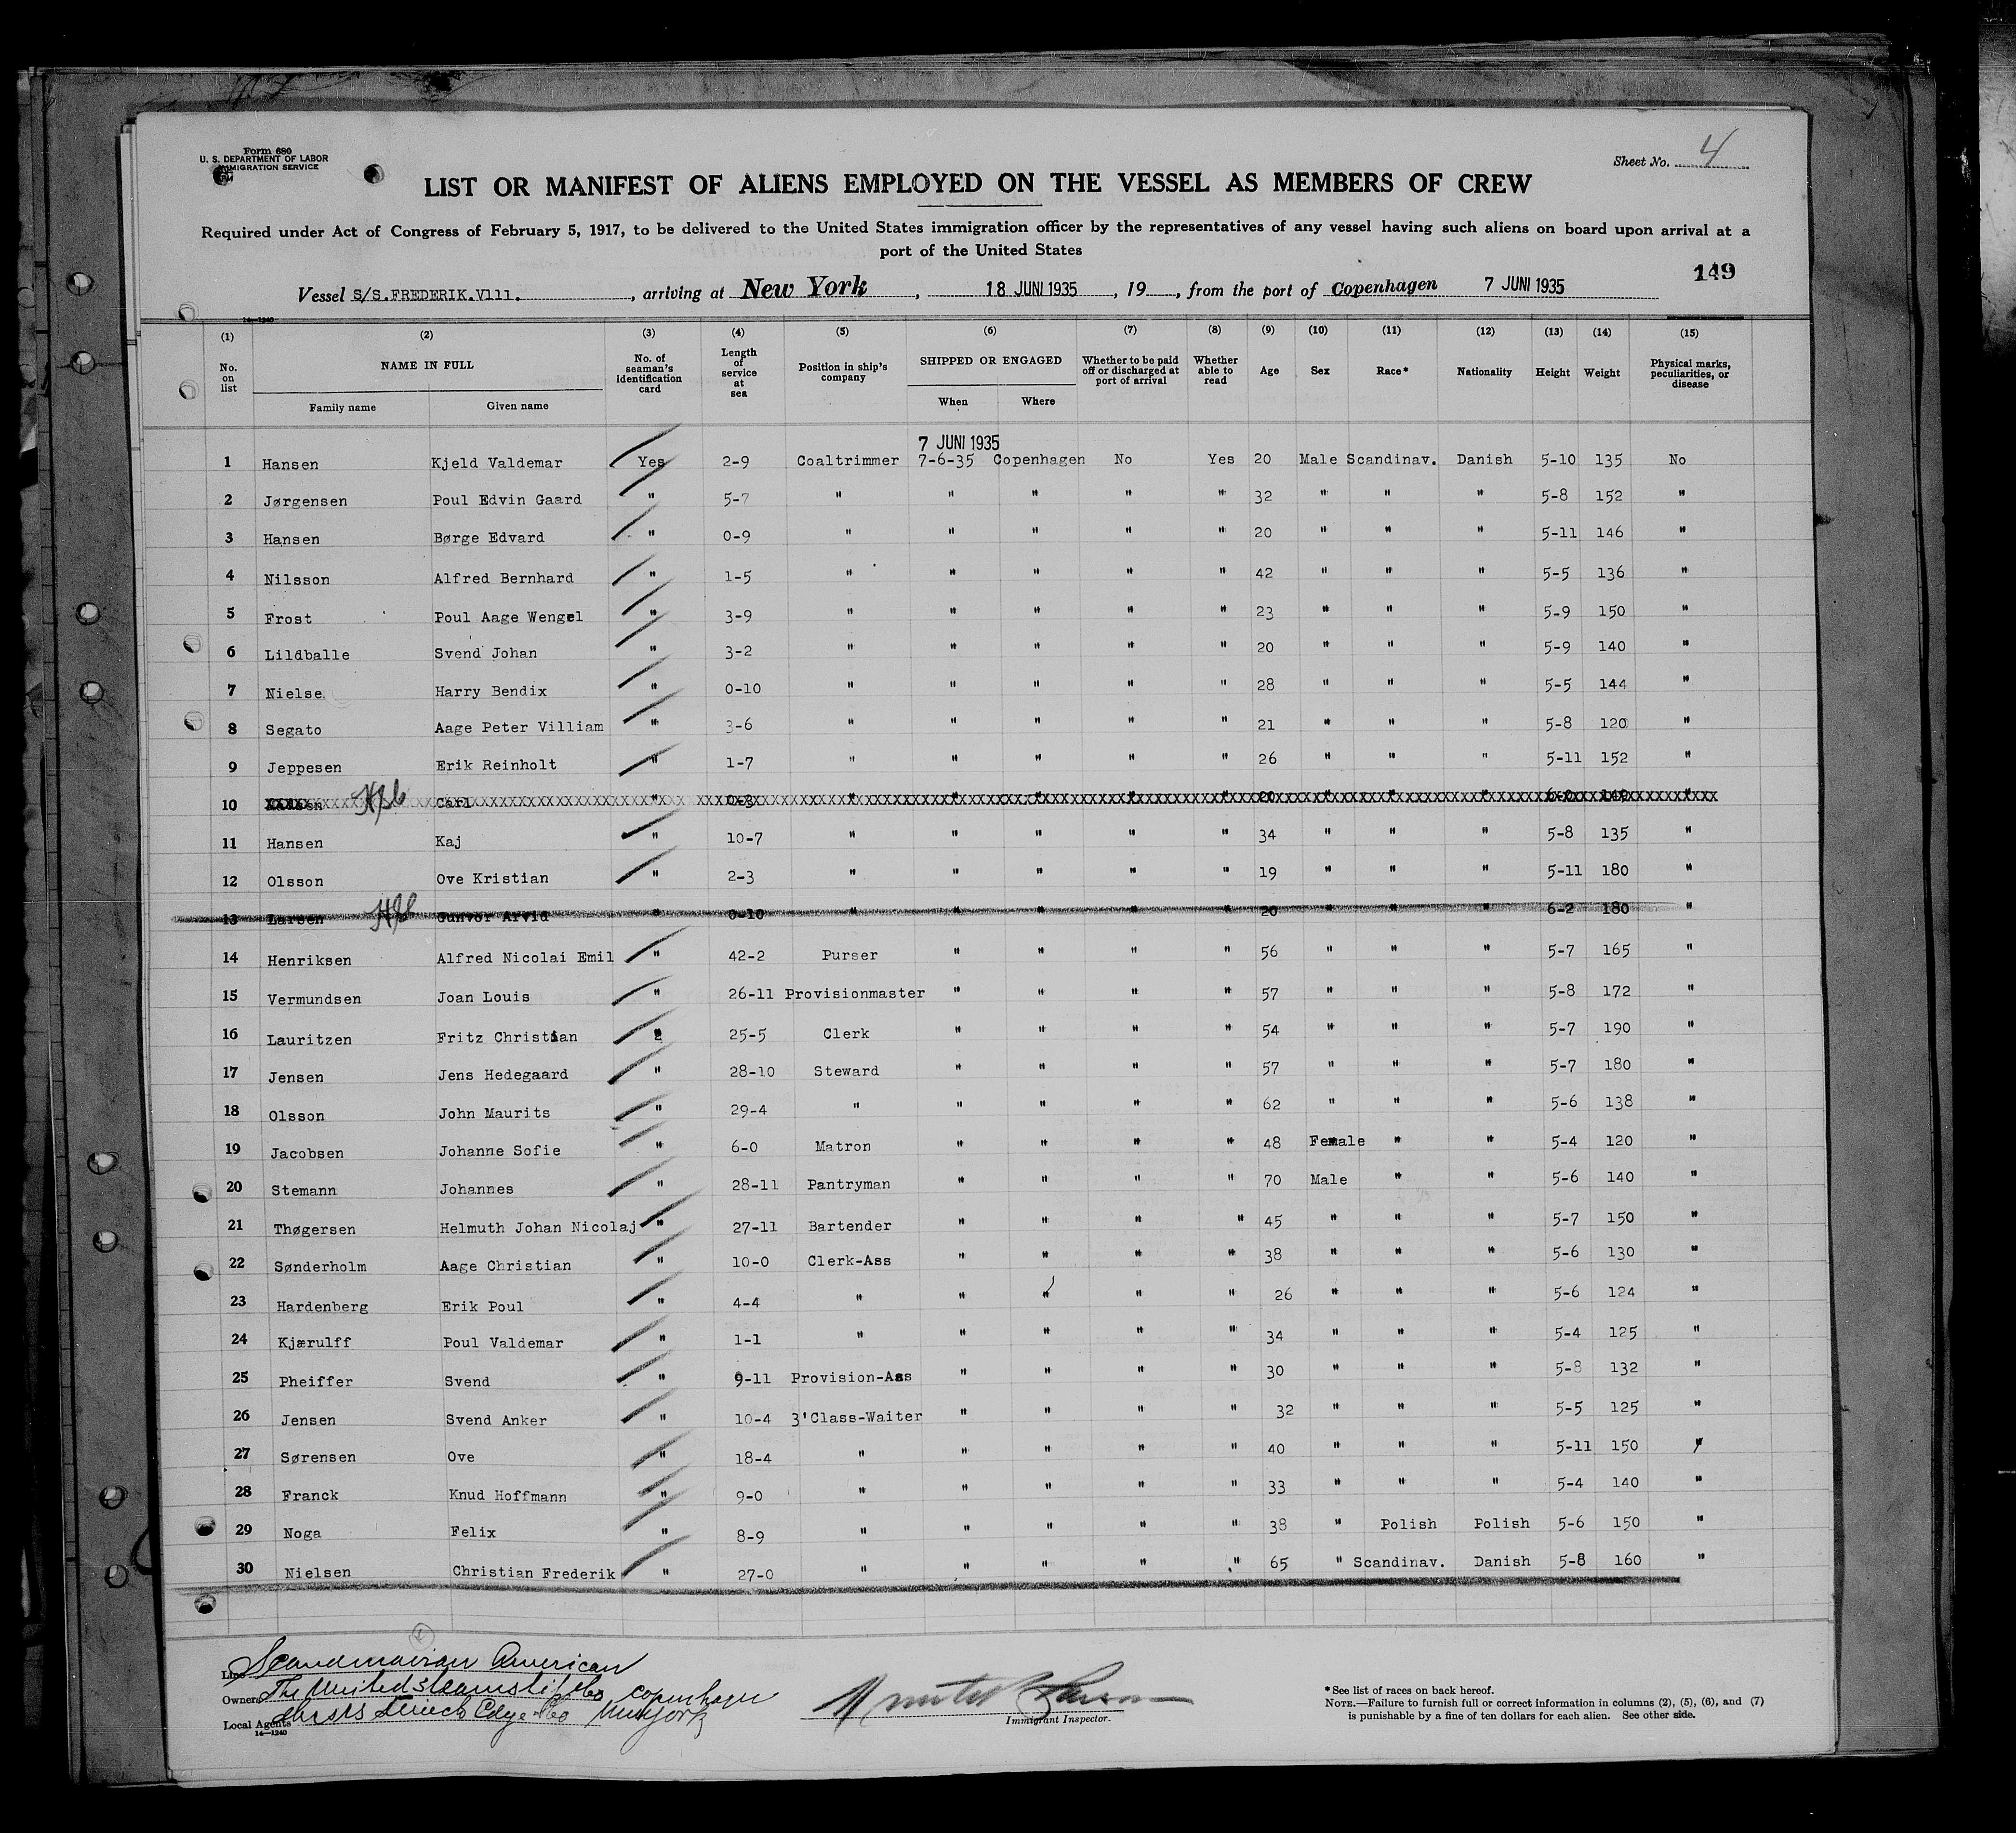 Form 680
U. S. DEPARTMENT OF LABOR
IMMIGRATION SERVICE
Sheet No. 4
LIST OR MANIFEST OF ALIENS EMPLOYED ON THE VESSEL AS MEMBERS OF CREW
Required under Act of Congress of February 5, 1917, to be delivered to the United States immigration officer by the representatives of any vessel having such aliens on board upon arrival at a
port of the United States
149
Vessel S/S.FREDERIK.V111. , arriving at New York , 18 JUNI 1935 , 19 , from the port of Copenhagen 7 JUNI 1935
14—1240
(1) (2) (3) (4) (5) (6) (7) (8) (9) (10) (11) (12) (13) (14) (15)
No. on list NAME IN FULL No. of seaman's identification card Length of service at sea Position in ship's company SHIPPED OR ENGAGED Whether to be paid off or discharged at port of arrival Whether able to read Age Sex Race* Nationality Height Weight Physical marks, peculiarities, or disease
Family name Given name When Where
7 JUNI 1935
1 Hansen Kjeld Valdemar Yes 2-9 Coaltrimmer 7-6-35 Copenhagen No Yes 20 Male Scandinav. Danish 5-10 135 No
2 Jørgensen Poul Edvin Gaard " 5-7 " " " " " 32 " " " 5-8 152 "
3 Hansen Børge Edvard " 0-9 " " " " " 20 " " " 5-11 146 "
4 Nilsson Alfred Bernhard " 1-5 " " " " " 42 " " " 5-5 136 "
5 Frost Poul Aage Wengel " 3-9 " " " " " 23 " " " 5-9 150 "
6 Lildballe Svend Johan " 3-2 " " " " " 20 " " " 5-9 140 "
7 Nielse Harry Bendix " 0-10 " " " " " 28 " " " 5-5 144 "
8 Segato Aage Peter Villiam " 3-6 " " " " " 21 " " " 5-8 120 "
9 Jeppesen Erik Reinholt " 1-7 " " " " " 26 " " " 5-11 152 "
10 Carl " 0-3 " " " " " 20 " " " 6-0 149 "
11 Hansen Kaj " 10-7 " " " " " 34 " " " 5-8 135 "
12 Olsson Ove Kristian " 2-3 " " " " " 19 " " " 5-11 180 "
13 Larsen Gunvor Arvid " 0-10 " " " " " 20 " " " 6-2 180 "
14 Henriksen Alfred Nicolai Emil " 42-2 Purser " " " " 56 " " " 5-7 165 "
15 Vermundsen Joan Louis " 26-11 Provisionmaster " " " " 57 " " " 5-8 172 "
16 Lauritzen Fritz Christian " 25-5 Clerk " " " " 54 " " " 5-7 190 "
17 Jensen Jens Hedegaard " 28-10 Steward " " " " 57 " " " 5-7 180 "
18 Olsson John Maurits " 29-4 " " " " " 62 " " " 5-6 138 "
19 Jacobsen Johanne Sofie " 6-0 Matron " " " " 48 Female " " 5-4 120 "
20 Stemann Johannes " 28-11 Pantryman " " " " 70 Male " " 5-6 140 "
21 Thøgersen Helmuth Johan Nicolaj " 27-11 Bartender " " " " 45 " " " 5-7 150 "
22 Sønderholm Aage Christian " 10-0 Clerk-Ass " " " " 38 " " " 5-6 130 "
23 Hardenberg Erik Poul " 4-4 " " " " " 26 " " " 5-6 124 "
24 Kjærulff Poul Valdemar " 1-1 " " " " " 34 " " " 5-4 125 "
25 Pheiffer Svend " 9-11 Provision-Ass " " " " 30 " " " 5-8 132 "
26 Jensen Svend Anker " 10-4 3'Class-Waiter " " " " 32 " " " 5-5 125 "
27 Sørensen Ove " 18-4 " " " " " 40 " " " 5-11 150 "
28 Franck Knud Hoffmann " 9-0 " " " " " 33 " " " 5-4 140 "
29 Noga Felix " 8-9 " " " " " 38 " Polish Polish 5-6 150 "
30 Nielsen Christian Frederik " 27-0 " " " " " 65 " Scandinav. Danish 5-8 160 "
Line Scandinavian American
Owners The United Steamship Co Copenhagen
Local Agents New York
14—1240
Immigrant Inspector.
*See list of races on back hereof.
NOTE.—Failure to furnish full or correct information in columns (2), (5), (6), and (7)
is punishable by a fine of ten dollars for each alien. See other side.